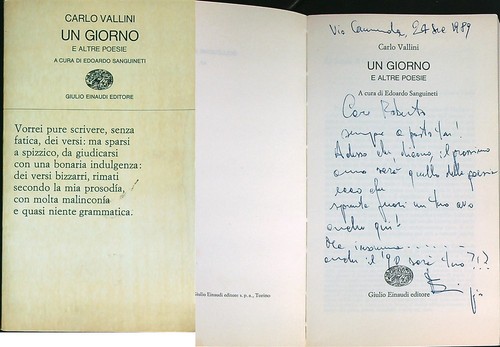 CARLO VALLINI
UN GIORNO
E ALTRE POESIE
A CURA DI EDOARDO SANGUINETI
GIULIO EINAUDI EDITORE
Vorrei pure scrivere, senza
fatica, dei versi: ma sparsi
a spizzico, da giudicarsi
con una bonaria indulgenza:
dei versi bizzarri, rimati
secondo la mia prosodía,
con molta malinconía
e quasi niente grammatica.
Giulio Einaudi editore s.p.a., Torino
Via 1989
Carlo Vallini
UN GIORNO
E ALTRE POESIE
A cura di Edoardo Sanguineti
Caro Roberto
sempre a
Adesso che, diciamo, il prossimo
anno sarà quello delle poesie
ecco che
spunta fuori un tuo avo
anche qui!
Ma insomma......
anche il '90 sarà tuo?!?
Giulio Einaudi editore